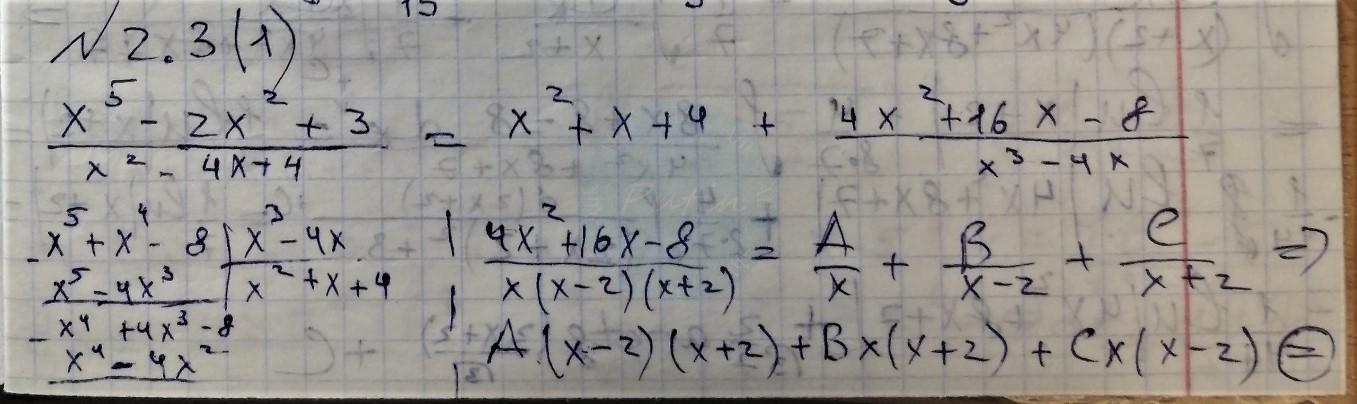 N 2.3(1)
(x^5 - 2x^2 + 3)/(x^2 - 4x + 4) = x^2 + x + 4 + (4x^2 + 16x - 8)/(x^3 - 4x)
- x^5 + x^4 - 8 | x^3 - 4x
x^5 - 4x^3 | x^2 + x + 4
- x^4 + 4x^3 - 8
x^4 - 4x^2
(4x^2 + 16x - 8)/(x(x-2)(x+2)) = A/x + B/(x-2) + C/(x+2) =>
A(x-2)(x+2) + Bx(x+2) + Cx(x-2) =